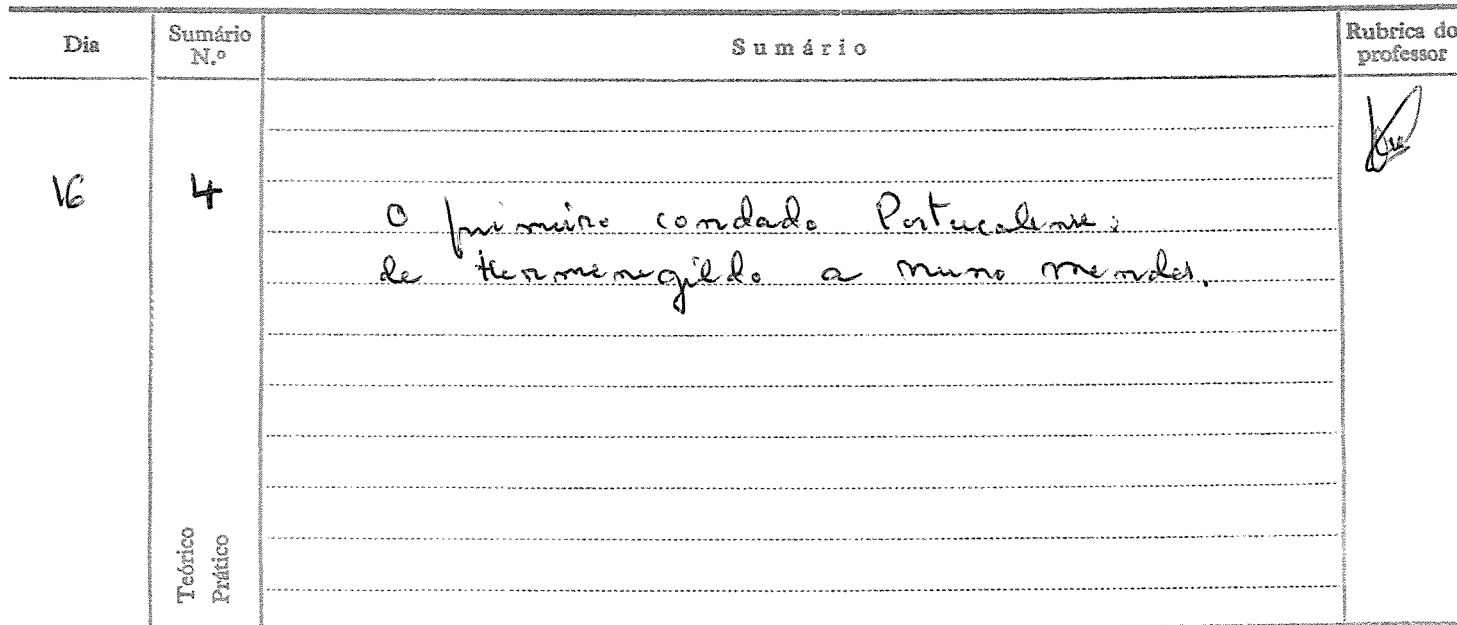 Dia
Sumário N.º
Sumário
Rubrica do professor
16
4
O primeiro condado Portucalense:
de Hermenegildo a Nuno Mendes.
Teórico
Prático